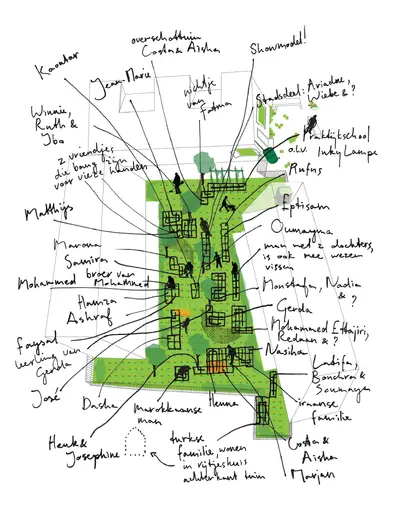 overschottuin
Costa & Aisha
Showmodel!
Kaoutar
Jean-Marie
nichtje
van
Fatma
Stadsdeel: Ariadne,
Wiebe & ?
Winnie,
Ruth &
Ybo
Praktijkschool
o.l.v. Inky Lampe
2 vriendjes
die bang zijn
voor vieze handen
Rufus
Matthijs
Eptisam
Oumayma
man met 2 dochters,
is ook mee wezen
vissen
Maroua
Samira
broer van
Mohammed Mohammed
Hamza
Ashraf
Moustafa, Nadia
& ?
Gerda
Mohammed Ettajiri,
Redouan & ?
Nasiha
Faysal
leerling van
Gerda
José
Latifa,
Bouchra &
Soumayen
Dasha
Marokkaanse
man
Henna
iraanse
familie
Henk &
Josephine
turkse
familie, wonen
in rijtjeshuis
achterkant tuin
Costa &
Aisha
Marjan